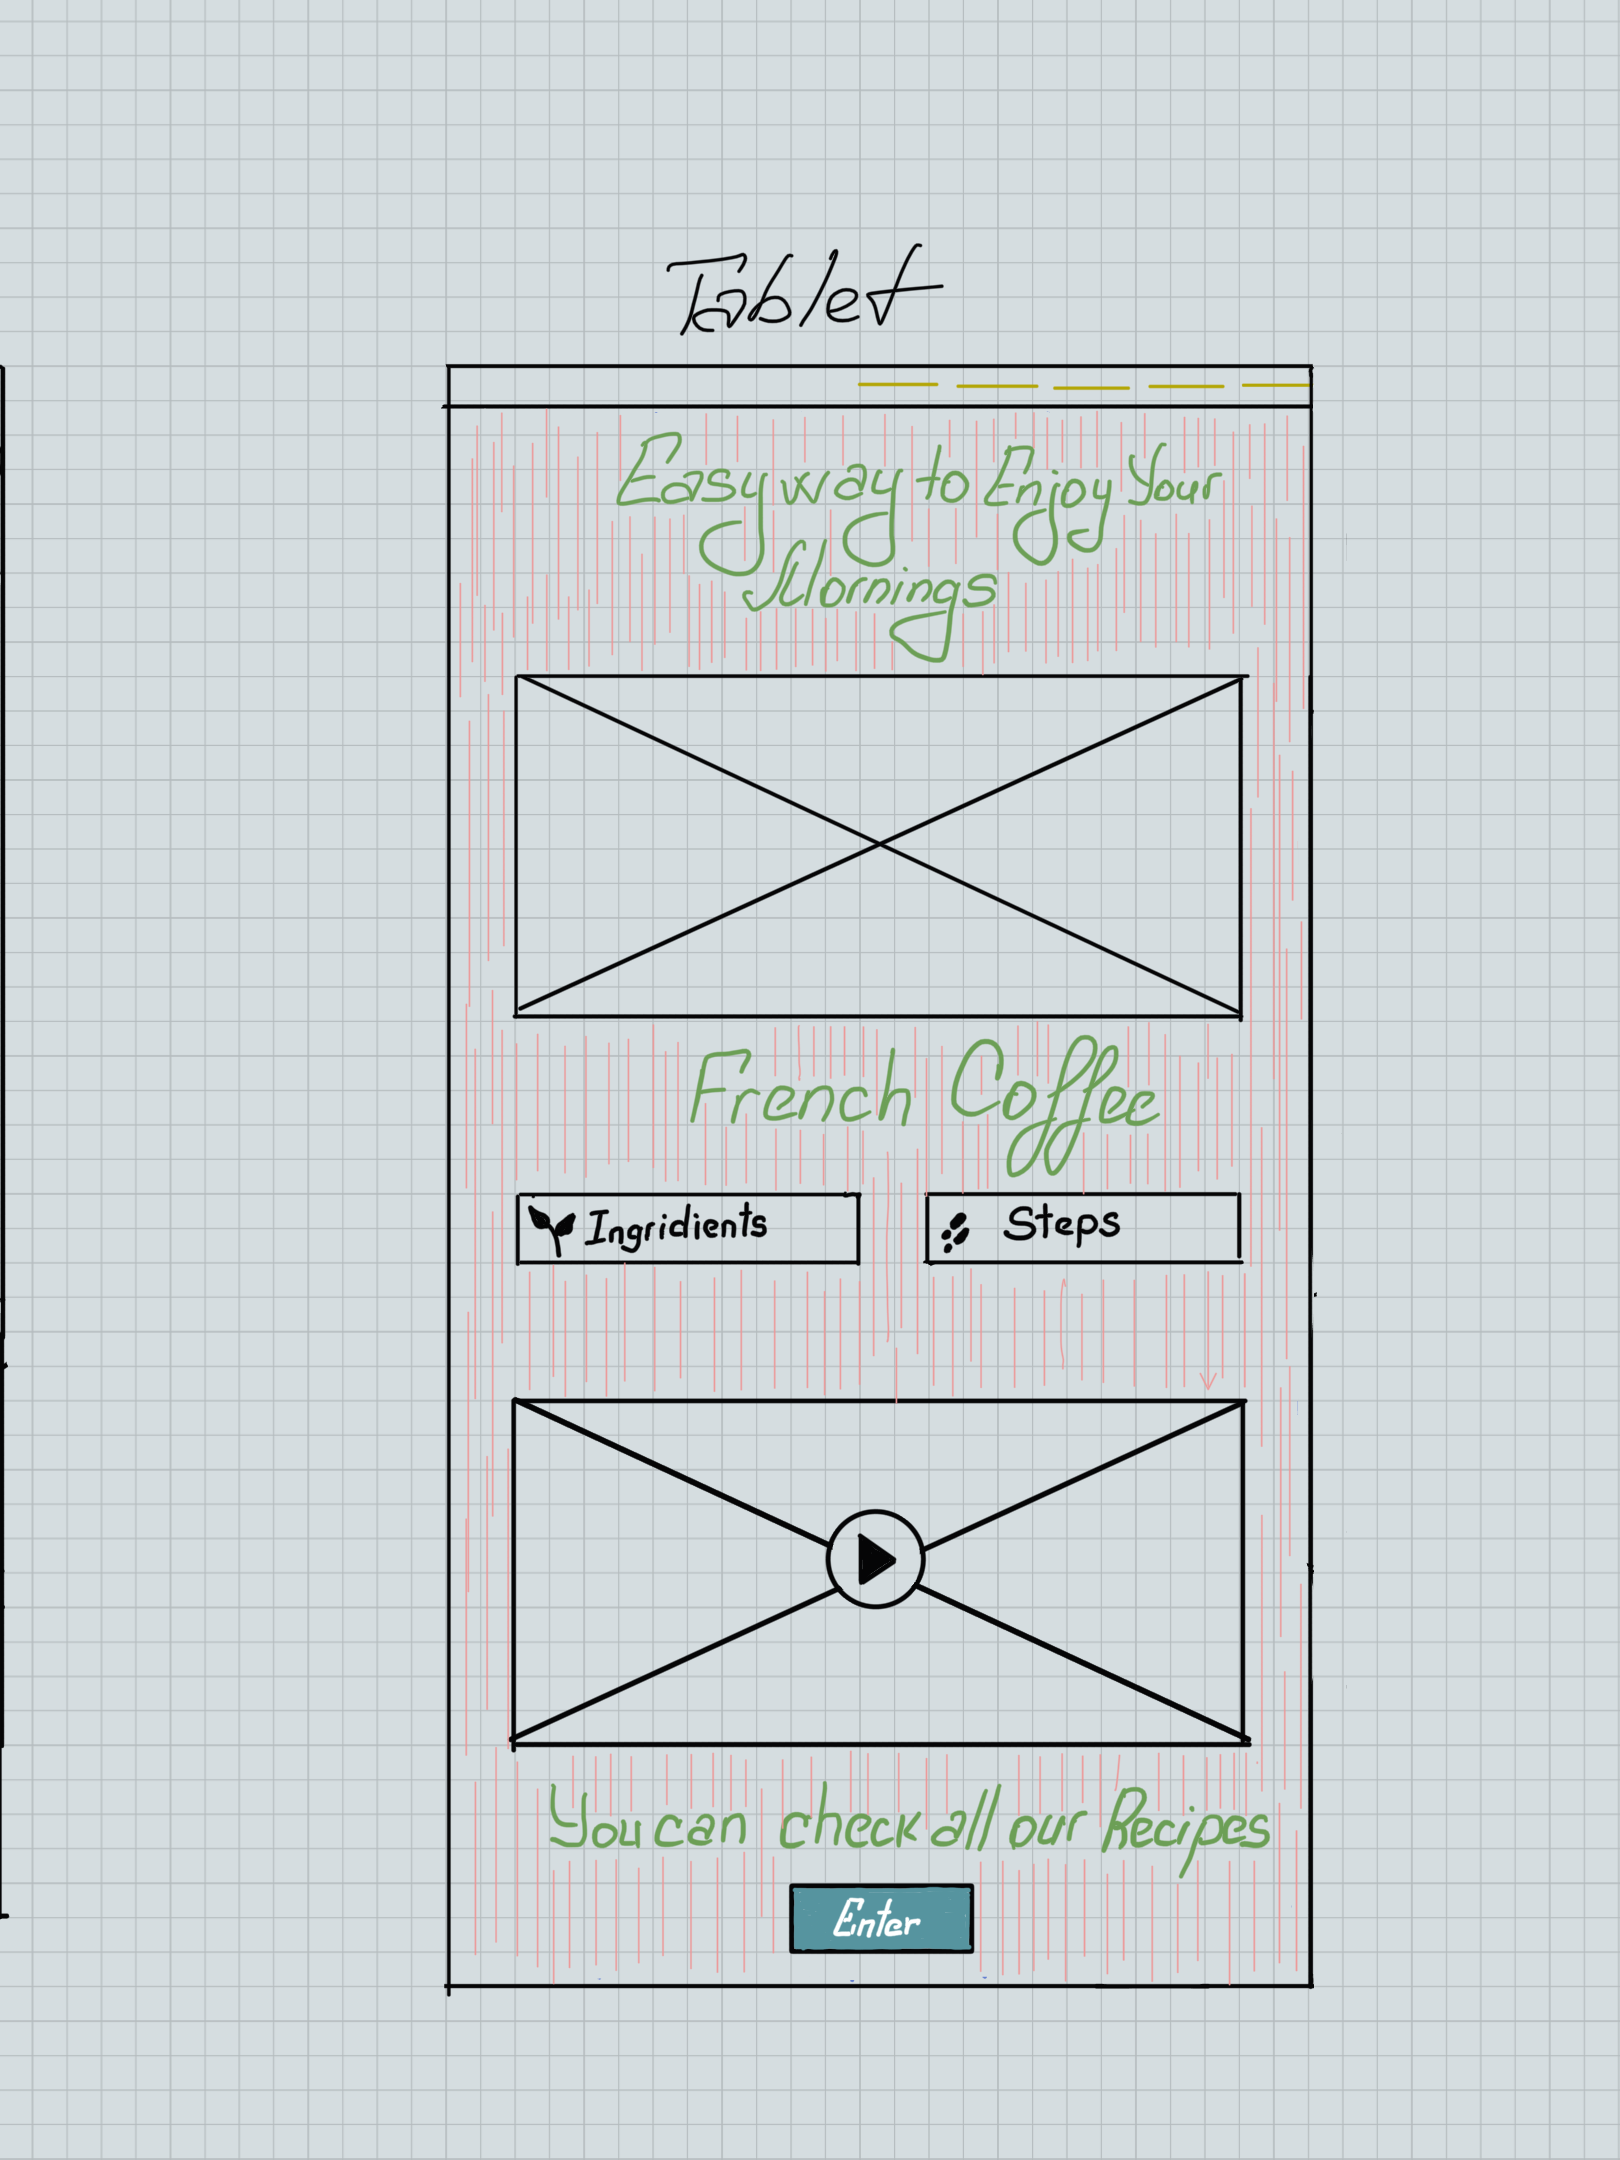 Tablet
Easy way to Enjoy Your
Mornings
French Coffee
Ingridients
Steps
You can check all our Recipes
Enter